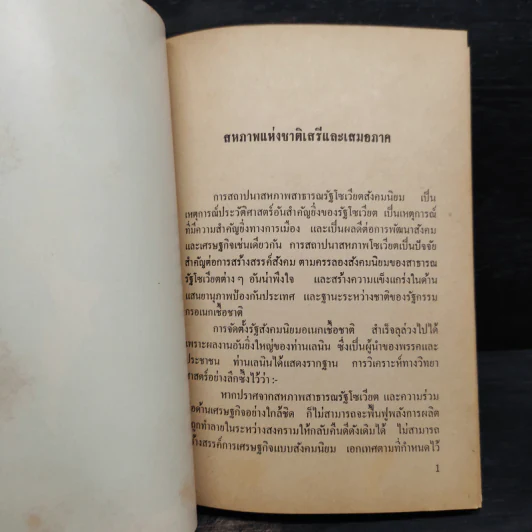 สหภาพแห่งชาติเสรีและเสมอภาค
การสถาปนาสหภาพสาธารณรัฐโซเวียตสังคมนิยม เป็น
เหตุการณ์ประวัติศาสตร์อันสำคัญยิ่งของรัฐโซเวียต เป็นเหตุการณ์
ที่มีความสำคัญยิ่งทางการเมือง และเป็นผลดีต่อการพัฒนาสังคม
และเศรษฐกิจเช่นเดียวกัน การสถาปนาสหภาพโซเวียตเป็นปัจจัย
สำคัญต่อการสร้างสรรค์สังคม ตามครรลองสังคมนิยมของสาธารณ
รัฐโซเวียตต่าง ๆ อันน่าพึงใจ และสร้างความแข็งแกร่งในด้าน
แสนยานุภาพป้องกันประเทศ และฐานะระหว่างชาติของรัฐกรรม
กรอเนกเชื้อชาติ
การจัดตั้งรัฐสังคมนิยมอเนกเชื้อชาติ สำเร็จลุล่วงไปได้
เพราะผลงานอันยิ่งใหญ่ของท่านเลนิน ซึ่งเป็นผู้นำของพรรคและ
ประชาชน ท่านเลนินได้แสดงรากฐาน การวิเคราะห์ทางวิทยา
ศาสตร์อย่างลึกซึ้งไว้ว่า:-
หากปราศจากสหภาพสาธารณรัฐโซเวียต และความร่วม
อด้านเศรษฐกิจอย่างใกล้ชิด ก็ไม่สามารถจะฟื้นฟูพลังการผลิต
ถูกทำลายในระหว่างสงครามให้กลับคืนดีดังเดิมได้ ไม่สามารถ
ร้างสรรค์การเศรษฐกิจแบบสังคมนิยม เอกเทศตามที่กำหนดไว้
1